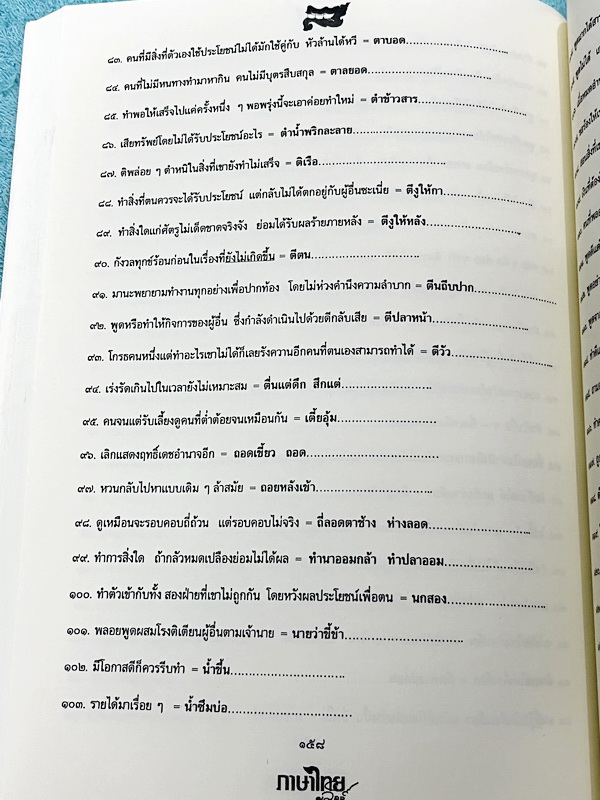 ๘๓. คนที่มีสิ่งที่ตัวเองใช้ประโยชน์ไม่ได้มักใช้คู่กับ หัวล้านได้หวี = ตาบอด..............................
๘๔. คนที่ไม่มีหนทางทำมาหากิน คนไม่มีบุตรสืบสกุล = ตาลยอด..............................
๘๕. ทำพอให้เสร็จไปแค่ครั้งหนึ่ง ๆ พอพรุ่งนี้จะเอาค่อยทำใหม่ = ตำข้าวสาร..............................
๘๖. เสียทรัพย์โดยไม่ได้รับประโยชน์อะไร = ตำน้ำพริกละลาย..............................
๘๗. ติพล่อย ๆ ตำหนิในสิ่งที่เขายังทำไม่เสร็จ = ติเรือ..............................
๘๘. ทำสิ่งที่ตนควรจะได้รับประโยชน์ แต่กลับไม่ได้ตกอยู่กับผู้อื่นซะเนี่ย = ตีงูให้กา..............................
๘๙. ทำสิ่งใดแก่ศัตรูไม่เด็ดขาดจริงจัง ย่อมได้รับผลร้ายภายหลัง = ตีงูให้หลัง..............................
๙๐. กังวลทุกข์ร้อนก่อนในเรื่องที่ยังไม่เกิดขึ้น = ตีตน..............................
๙๑. มานะพยายามทำงานทุกอย่างเพื่อปากท้อง โดยไม่ห่วงคำนึงความลำบาก = ตีนถีบปาก..............................
๙๒. พูดหรือทำให้กิจการของผู้อื่น ซึ่งกำลังดำเนินไปด้วยดีกลับเสีย = ตีปลาหน้า..............................
๙๓. โกรธคนหนึ่งแต่ทำอะไรเขาไม่ได้ก็เลยรังควานอีกคนที่ตนเองสามารถทำได้ = ตีวัว..............................
๙๔. เร่งรัดเกินไปในเวลายังไม่เหมาะสม = ตื่นแต่ดึก สึกแต่..............................
๙๕. คนจนแต่รับเลี้ยงดูคนที่ต่ำต้อยจนเหมือนกัน = เตี้ยอุ้ม..............................
๙๖. เลิกแสดงฤทธิ์เดชอำนาจอีก = ถอดเขี้ยว ถอด..............................
๙๗. หวนกลับไปหาแบบเดิม ๆ ล้าสมัย = ถอยหลังเข้า..............................
๙๘. ดูเหมือนจะรอบคอบถี่ถ้วน แต่รอบคอบไม่จริง = ถี่ลอดตาช้าง ห่างลอด..............................
๙๙. ทำการสิ่งใด ถ้ากลัวหมดเปลืองย่อมไม่ได้ผล = ทำนาออมกล้า ทำปลาออม..............................
๑๐๐. ทำตัวเข้ากับทั้ง สองฝ่ายที่เขาไม่ถูกกัน โดยหวังผลประโยชน์เพื่อตน = นกสอง..............................
๑๐๑. พลอยพูดผสมโรงติเตียนผู้อื่นตามเจ้านาย = นายว่าขี้ข้า..............................
๑๐๒. มีโอกาสดีก็ควรรีบทำ = น้ำขึ้น..............................
๑๐๓. รายได้มาเรื่อย ๆ = น้ำซึมบ่อ..............................
๑๕๘
ภาษาไทย